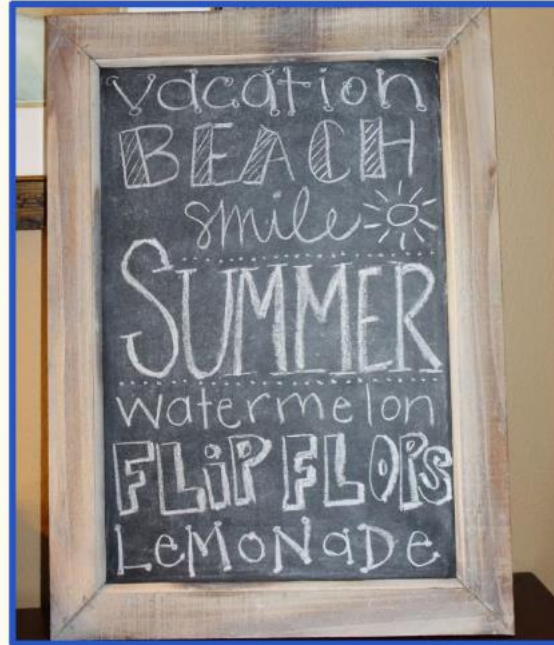 vacation
BEACH
smile
SUMMER
watermelon
FLiP FLOPS
LeMoNaDe